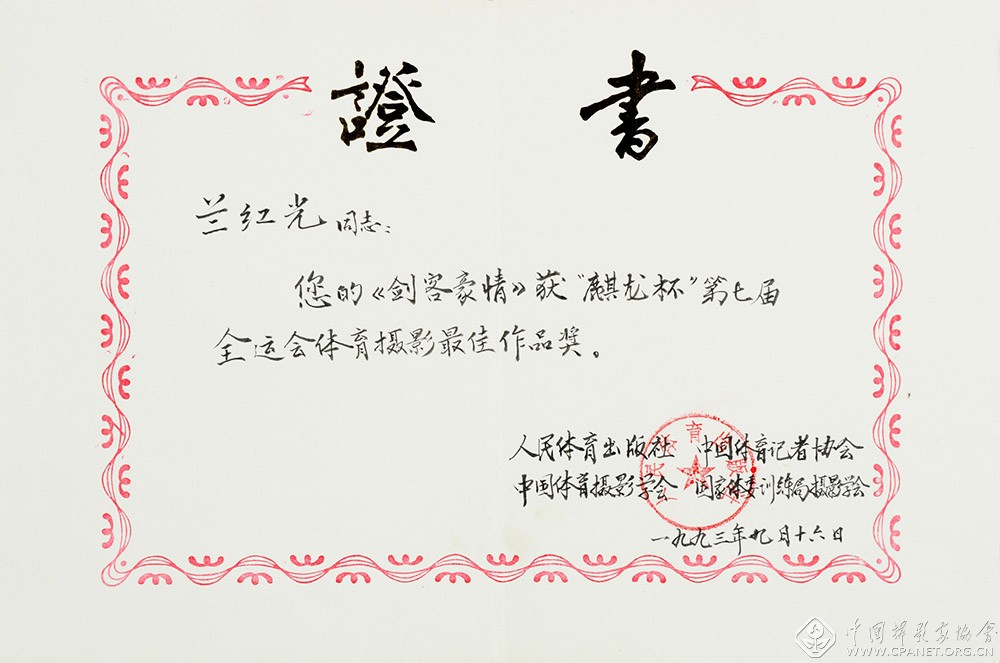 證書
兰红光同志：
您的《剑客豪情》获“麒龙杯”第七届
全运会体育摄影最佳作品奖。
人民体育出版社 中国体育记者协会
中国体育摄影学会 国家体委训练局摄影学会
一九九三年九月十六日
中国摄影家协會
WWW.CPANET.ORG.CN